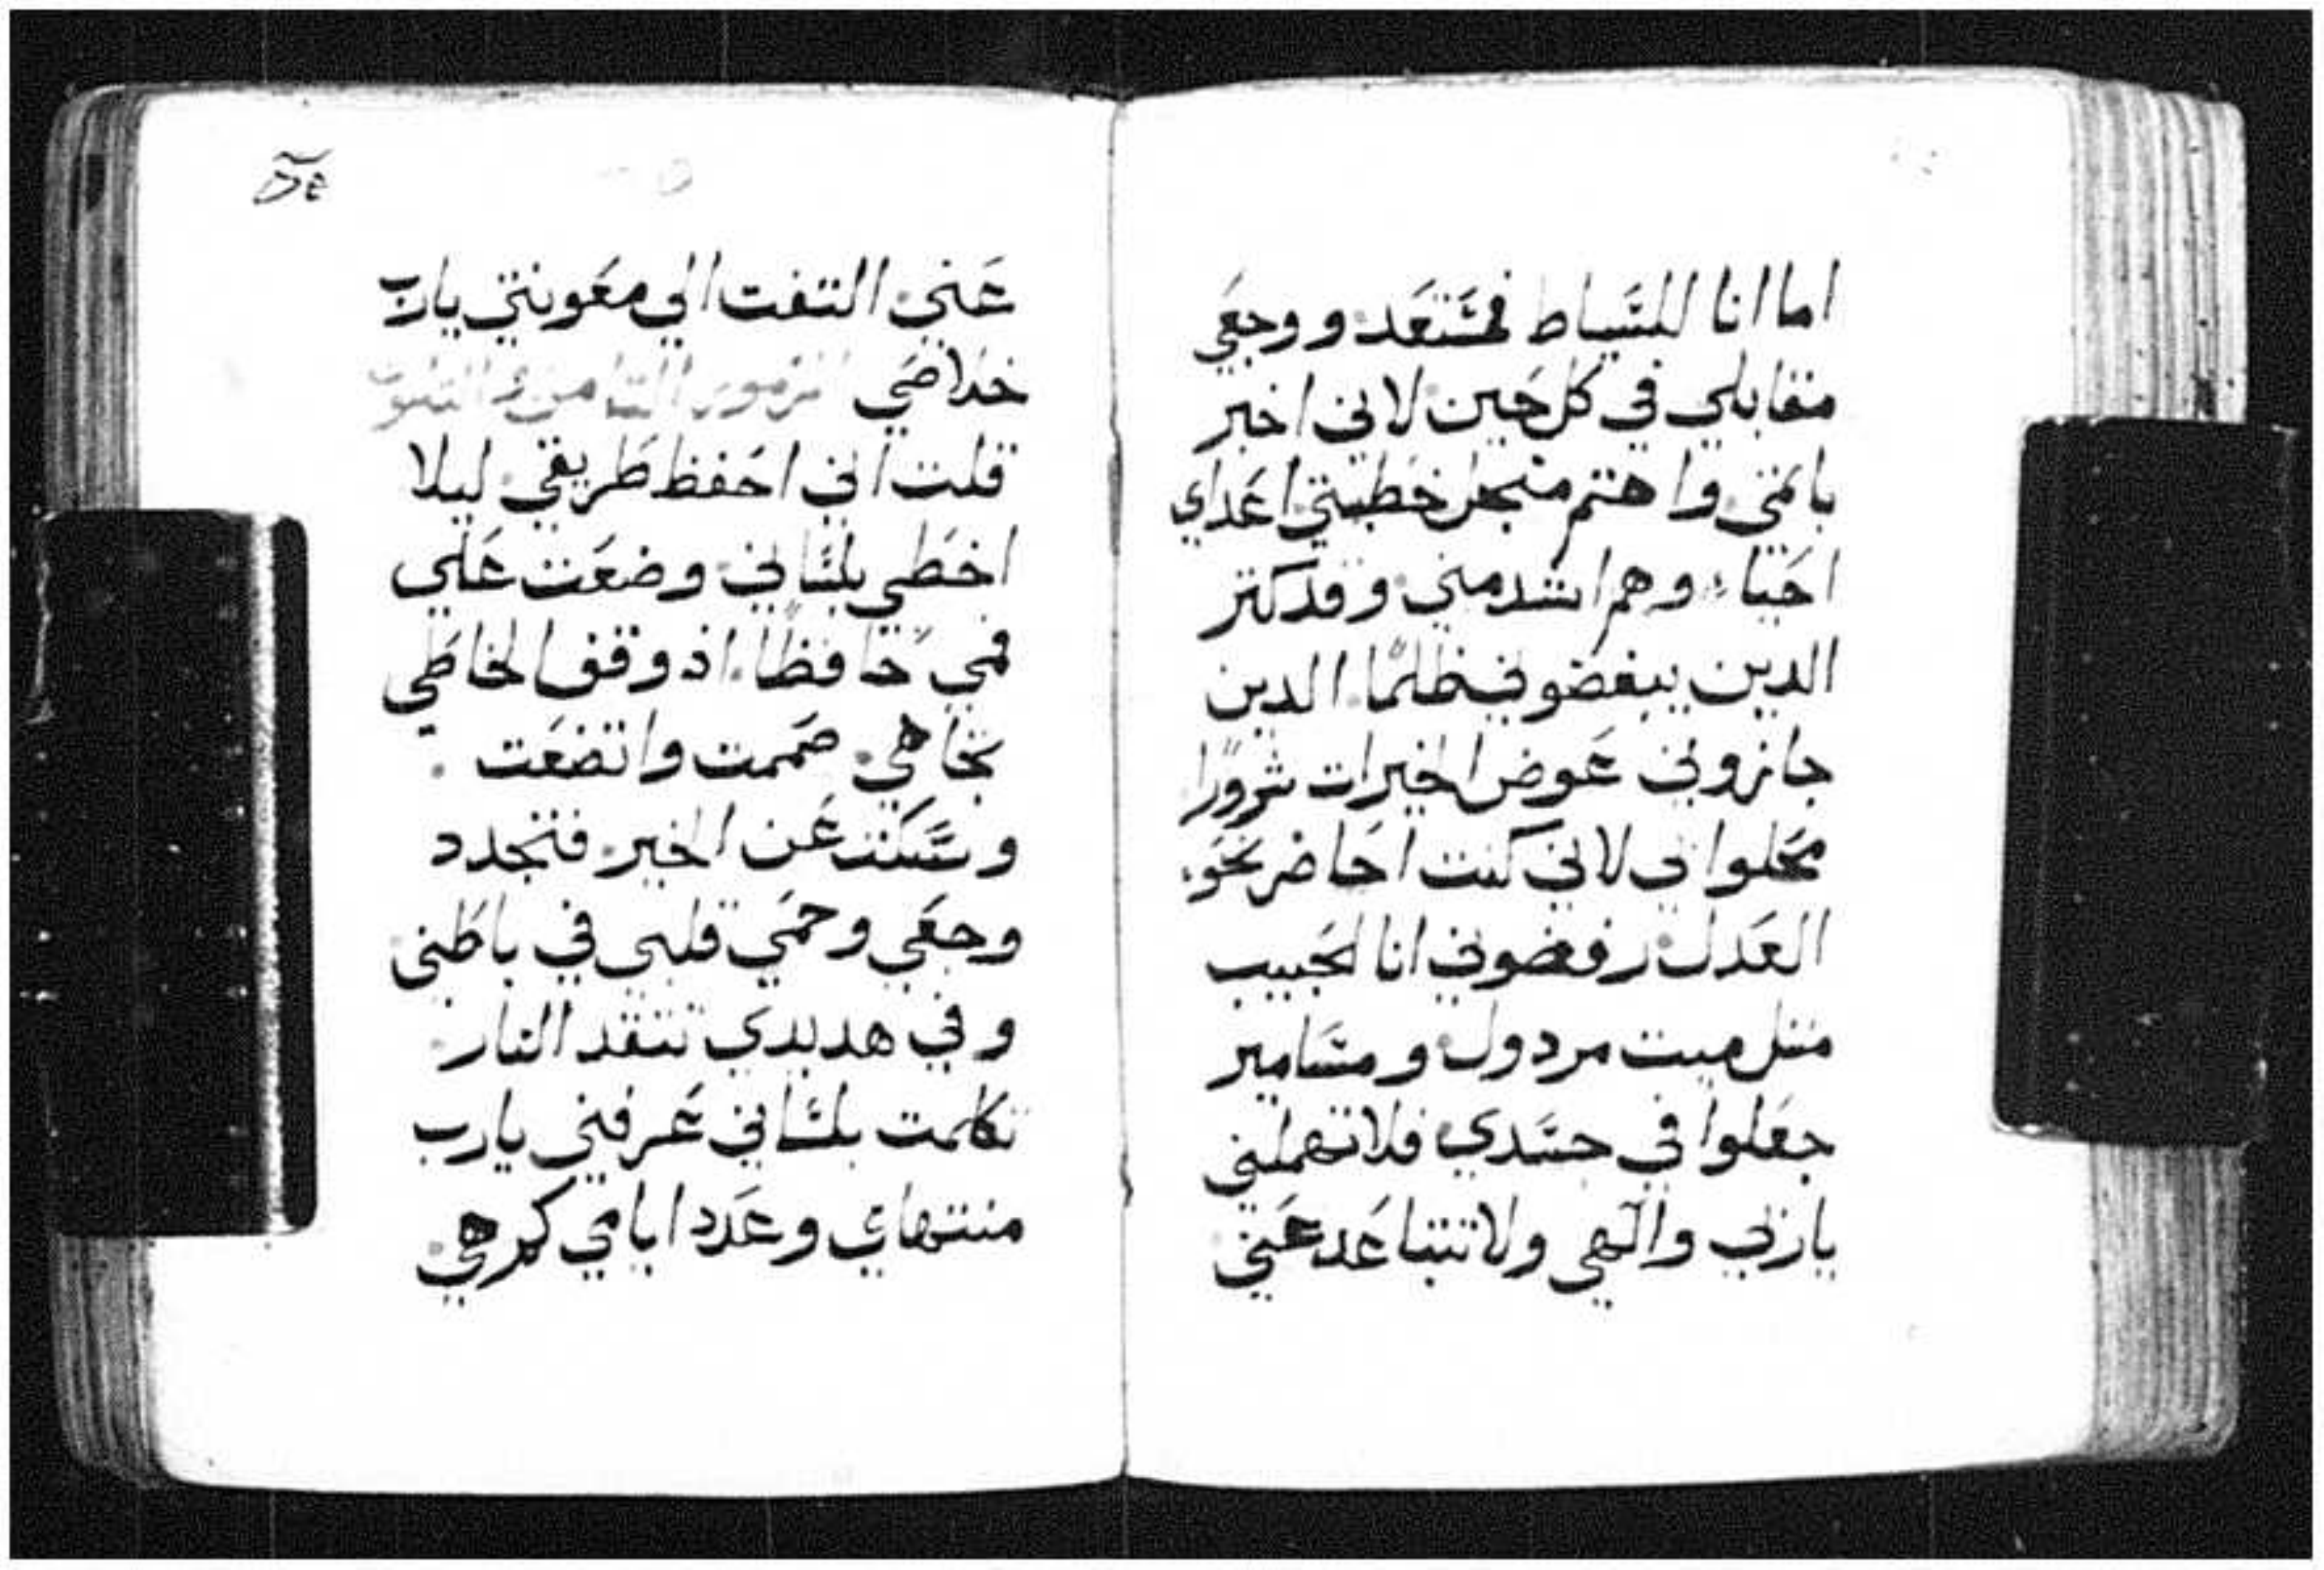 اما انا للسياط فمستعد ووجعي
مقابلي في كل حين لاني اخبر
باثمي واهتم منجل خطيتي اعداي
احيا وهم اشد مني وقد كتر
الدين يبغضوني ظلمًا الدين
جازوني عوض الخيرات شرورًا
محلوا بي لاني كنت احاضر نحو
العدل رفضوني انا الحبيب
متل ميت مردول ومسامير
جعلوا في جسدي فلا تهملني
ياربي والهي ولا تتباعد عني
عني التفت الي معونتي يارب
خلاصي المزمور التامن و
قلت اني احفظ طريقي ليلا
اخطي بلساني وضعت علي
فمي حافظًا اذ وقف الخاطي
تجاهي صممت واتضعت
وسكت عن الخير فتجدد
وجعي وحمي قلبي في باطني
وفي هديدي تتقد النار
تكلمت بلساني عرفني يارب
منتهاي وعدد ايامي كم هي